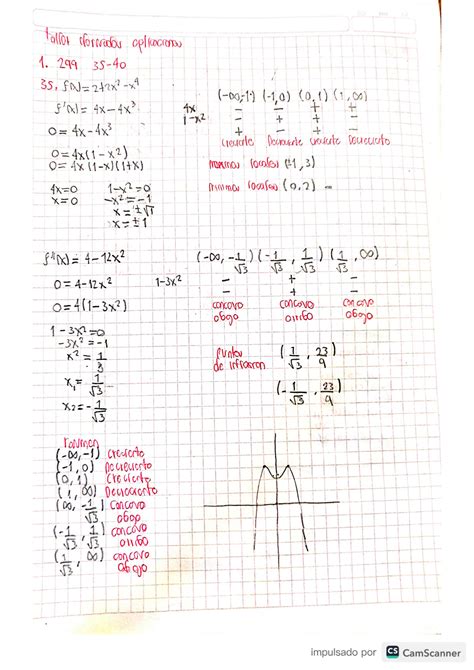 taller derivadas aplicaciones
1. 299 35-40
35. f(x)=2+2x²-x⁴
f'(x)= 4x-4x³
0= 4x-4x³
0= 4x(1-x²)
0= 4x(1-x)(1+x)
4x=0 1-x²=0
x=0 -x²=-1
x=±√1
x=±1
(-∞,-1) (-1,0) (0,1) (1,∞)
4x - - + +
1-x² - + + -
+ - + -
Creciente Decreciente creciente Decreciente
maximos locales (±1, 3)
minimos locales (0,2)
f''(x)= 4-12x²
0= 4-12x²
0=4(1-3x²)
1-3x²=0
-3x²=-1
x²= 1/3
x₁= 1/√3
x₂=-1/√3
(-∞,-1/√3) (-1/√3, 1/√3) (1/√3, ∞)
1-3x² - + -
- + -
concavo concavo concavo
abajo arriba abajo
puntos de inflexion (1/√3, 23/9)
(-1/√3, 23/9)
resumen
(-∞,-1) creciente
(-1,0) Decreciente
(0,1) Creciente
(1,∞) Decreciente
(∞,-1/√3) concavo abajo
(-1/√3, 1/√3) concavo arriba
(1/√3, ∞) concavo abajo
impulsado por CS CamScanner